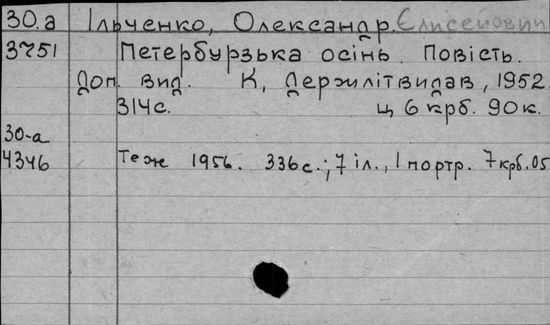 30.а Ільченко, Олександр. Єлисейович
3751 Петербурзька осінь. Повість.
Доп. вид. К, Держлітвидав, 1952
314с. ц 6 крб. 90к.
30-а
4346 Теж 1956. 336с.; 7 іл., 1 портр. 7крб.05